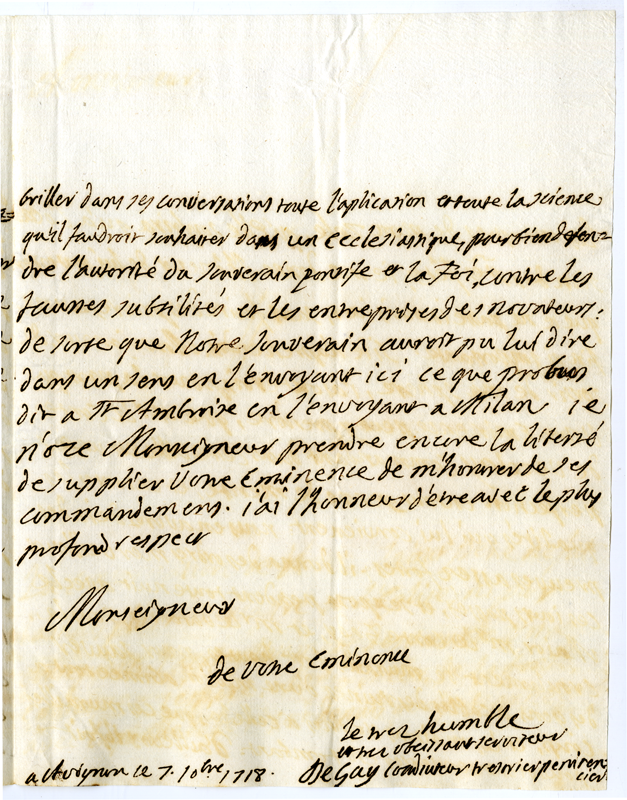 briller dans ses conversations toute l'aplication et toute la science
qu'il faudroit souhaiter dans un Ecclesiastique, pour bien defen-
dre l'autorité du souverain pontife et la Foi, contre les
fausses subtilités et les entreprises des novateurs:
de sorte que Notre Souverain auroit pu lui dire
dans un sens en l'envoyant ici ce que probus
dit a St Ambroise en l'envoyant a Milan je
n'oze Monseigneur prendre encore la liberté
de supplier Votre Eminence de m'honorer de ses
commandemens. j'ai l'honneur d'etre avec le plus
profond respect
Monseigneur
de votre Eminence
le trez humble
et trez obeissant serviteur
a Avignon ce 7. 10bre 1718. De Gay Coadiuteur tresorier peniten-
cier